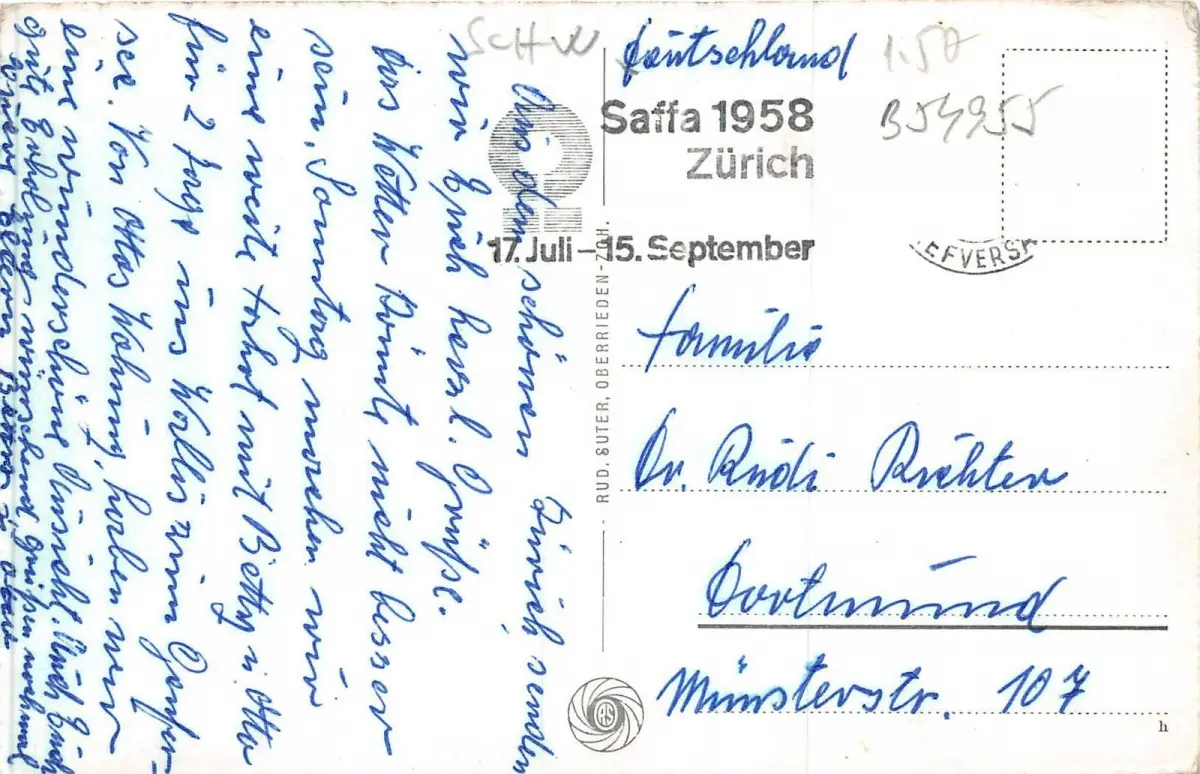 Aus dem schönen Zürich senden
wir Euch herzl. Grüße.
Das Wetter könnte nicht besser
sein. Sonntag machen wir
eine weite Fahrt mit Betty u. Otto
für 2 Tage ins Wallis zum Genfer-
see. Von Ottos Wohnung haben wir
eine wunderschöne Aussicht. Auch Euch
gute Erholung wünschend, grüßen nochmal
SCHW
Deutschland
1.50
B54955
Saffa 1958
Zürich
17. Juli – 15. September
EFVERS
RUD. SUTER, OBERRIEDEN-ZCH.
Familie
Dr. Rudi Richter
Dortmund
Münsterstr. 107
RS
h